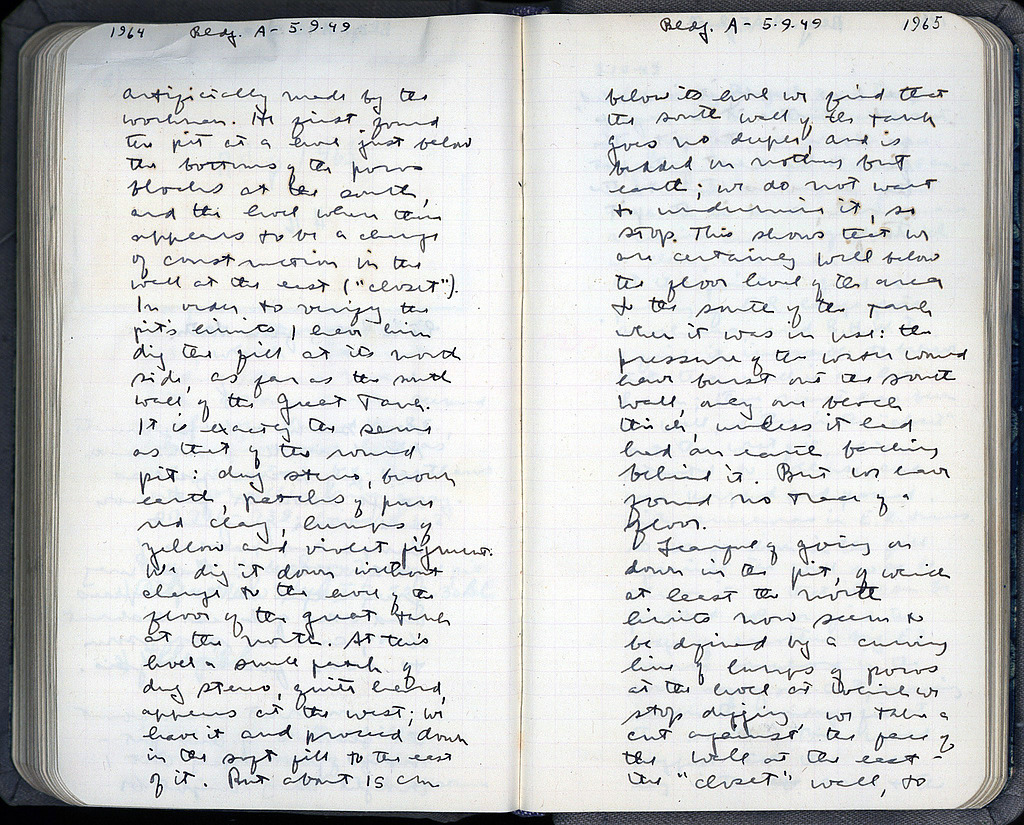 1964 Bldg. A - 5.9.49
artificially made by the
workman. He first found
the pit at a level just below
the bottoms of the poros
blocks at the south,
and the level where there
appears to be a change
of construction in the
wall at the east ("closet").
In order to verify the
pit's limits I have him
dig the fill at its north
side, as far as the south
wall of the Great Tank.
It is exactly the same
as that of the round
pit: dug stereo, brown
earth, patches of pure
red clay, lumps of
yellow and violet pigment.
We dig it down without
change to the level of the
floor of the great tank
at the north. At this
level a small patch of
dug stereo, quite hard,
appears at the west; we
leave it and proceed down
in the soft fill to the east
of it. But about 15 cm
Bldg. A - 5.9.49 1965
below its level we find that
the south wall of the tank
goes no deeper, and is
bedded on nothing but
earth; we do not want
to undermine it, so
stop. This shows that we
are certainly well below
the floor level of the area
to the south of the tank
when it was in use: the
pressure of the water would
have burst out the south
wall, only one block
thick, unless it had
had an earth backing
behind it. But we have
found no trace of a
floor.
Fearful of going on
down in the pit, of which
at least the north
limits now seem to
be defined by a curving
line of lumps of poros
at the level at which we
stop digging, we take a
cut against the face of
the wall at the east -
the "closet" wall, to